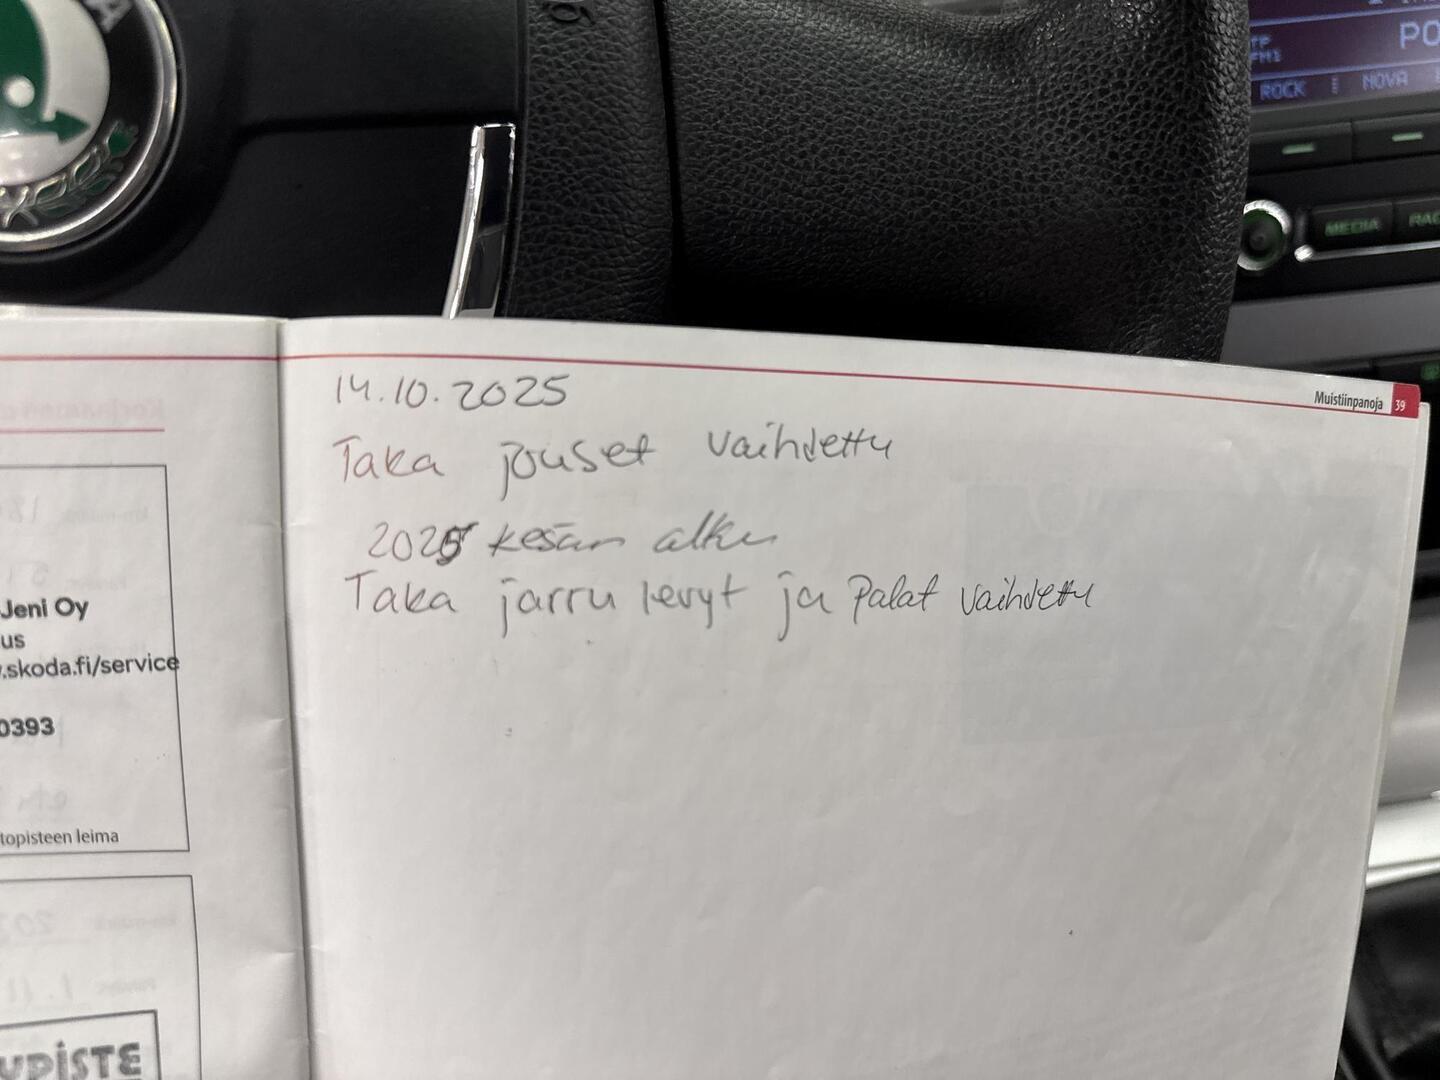 TP
FM1
PO
ROCK
NOVA
MEDIA
Muistiinpanoja 39
14.10.2025
Taka jouset vaihdettu
2025 kesän alku
Taka jarru levyt ja Palat vaihdettu
Jeni Oy
us
.skoda.fi/service
0393
topisteen leima
UPISTE